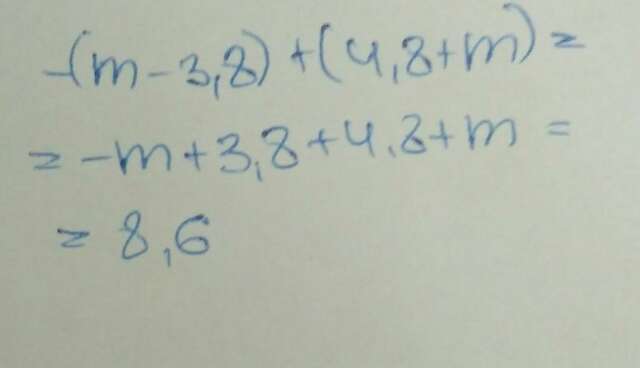 -(m-3,8)+(4,8+m)=
=-m+3,8+4,8+m=
=8,6